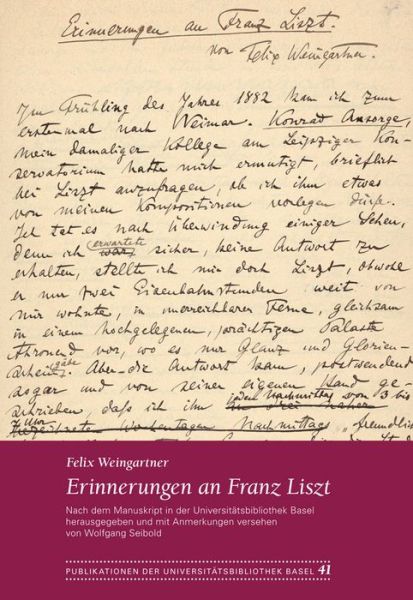 Erinnerungen an Franz Liszt.
von Felix Weingartner.
Im Frühling des Jahres 1882 kam ich zum
erstenmal nach Weimar. Konrad Ansorge,
mein damaliger Kollege am Leipziger Kon-
servatorium hatte mich ermutigt, brieflich
bei Liszt anzufragen, ob ich ihm etwas
von meinen Kompositionen vorlegen dürfe.
Ich tat es nach Überwindung einiger Scheu,
erwartete
denn ich war sicher, keine Antwort zu
erhalten, stellte ich mir doch Liszt, obwohl
er nur zwei Eisenbahnstunden weit von
mir wohnte, in unerreichbarer Ferne, gleichsam
in einem hochgelegenen, prächtigen Palaste
thronend vor, wo es nur Glanz und Glorien-
gäbe. Aber die Antwort kam, postwendend
sogar und von seiner eigenen Hand ge-
jeden Nachmittag von 3 bis
schrieben, daß ich ihm
Uhr
Wochentagen Nachmittags
Felix Weingartner
Erinnerungen an Franz Liszt
Nach dem Manuskript in der Universitätsbibliothek Basel
herausgegeben und mit Anmerkungen versehen
von Wolfgang Seibold
PUBLIKATIONEN DER UNIVERSITÄTSBIBLIOTHEK BASEL 41